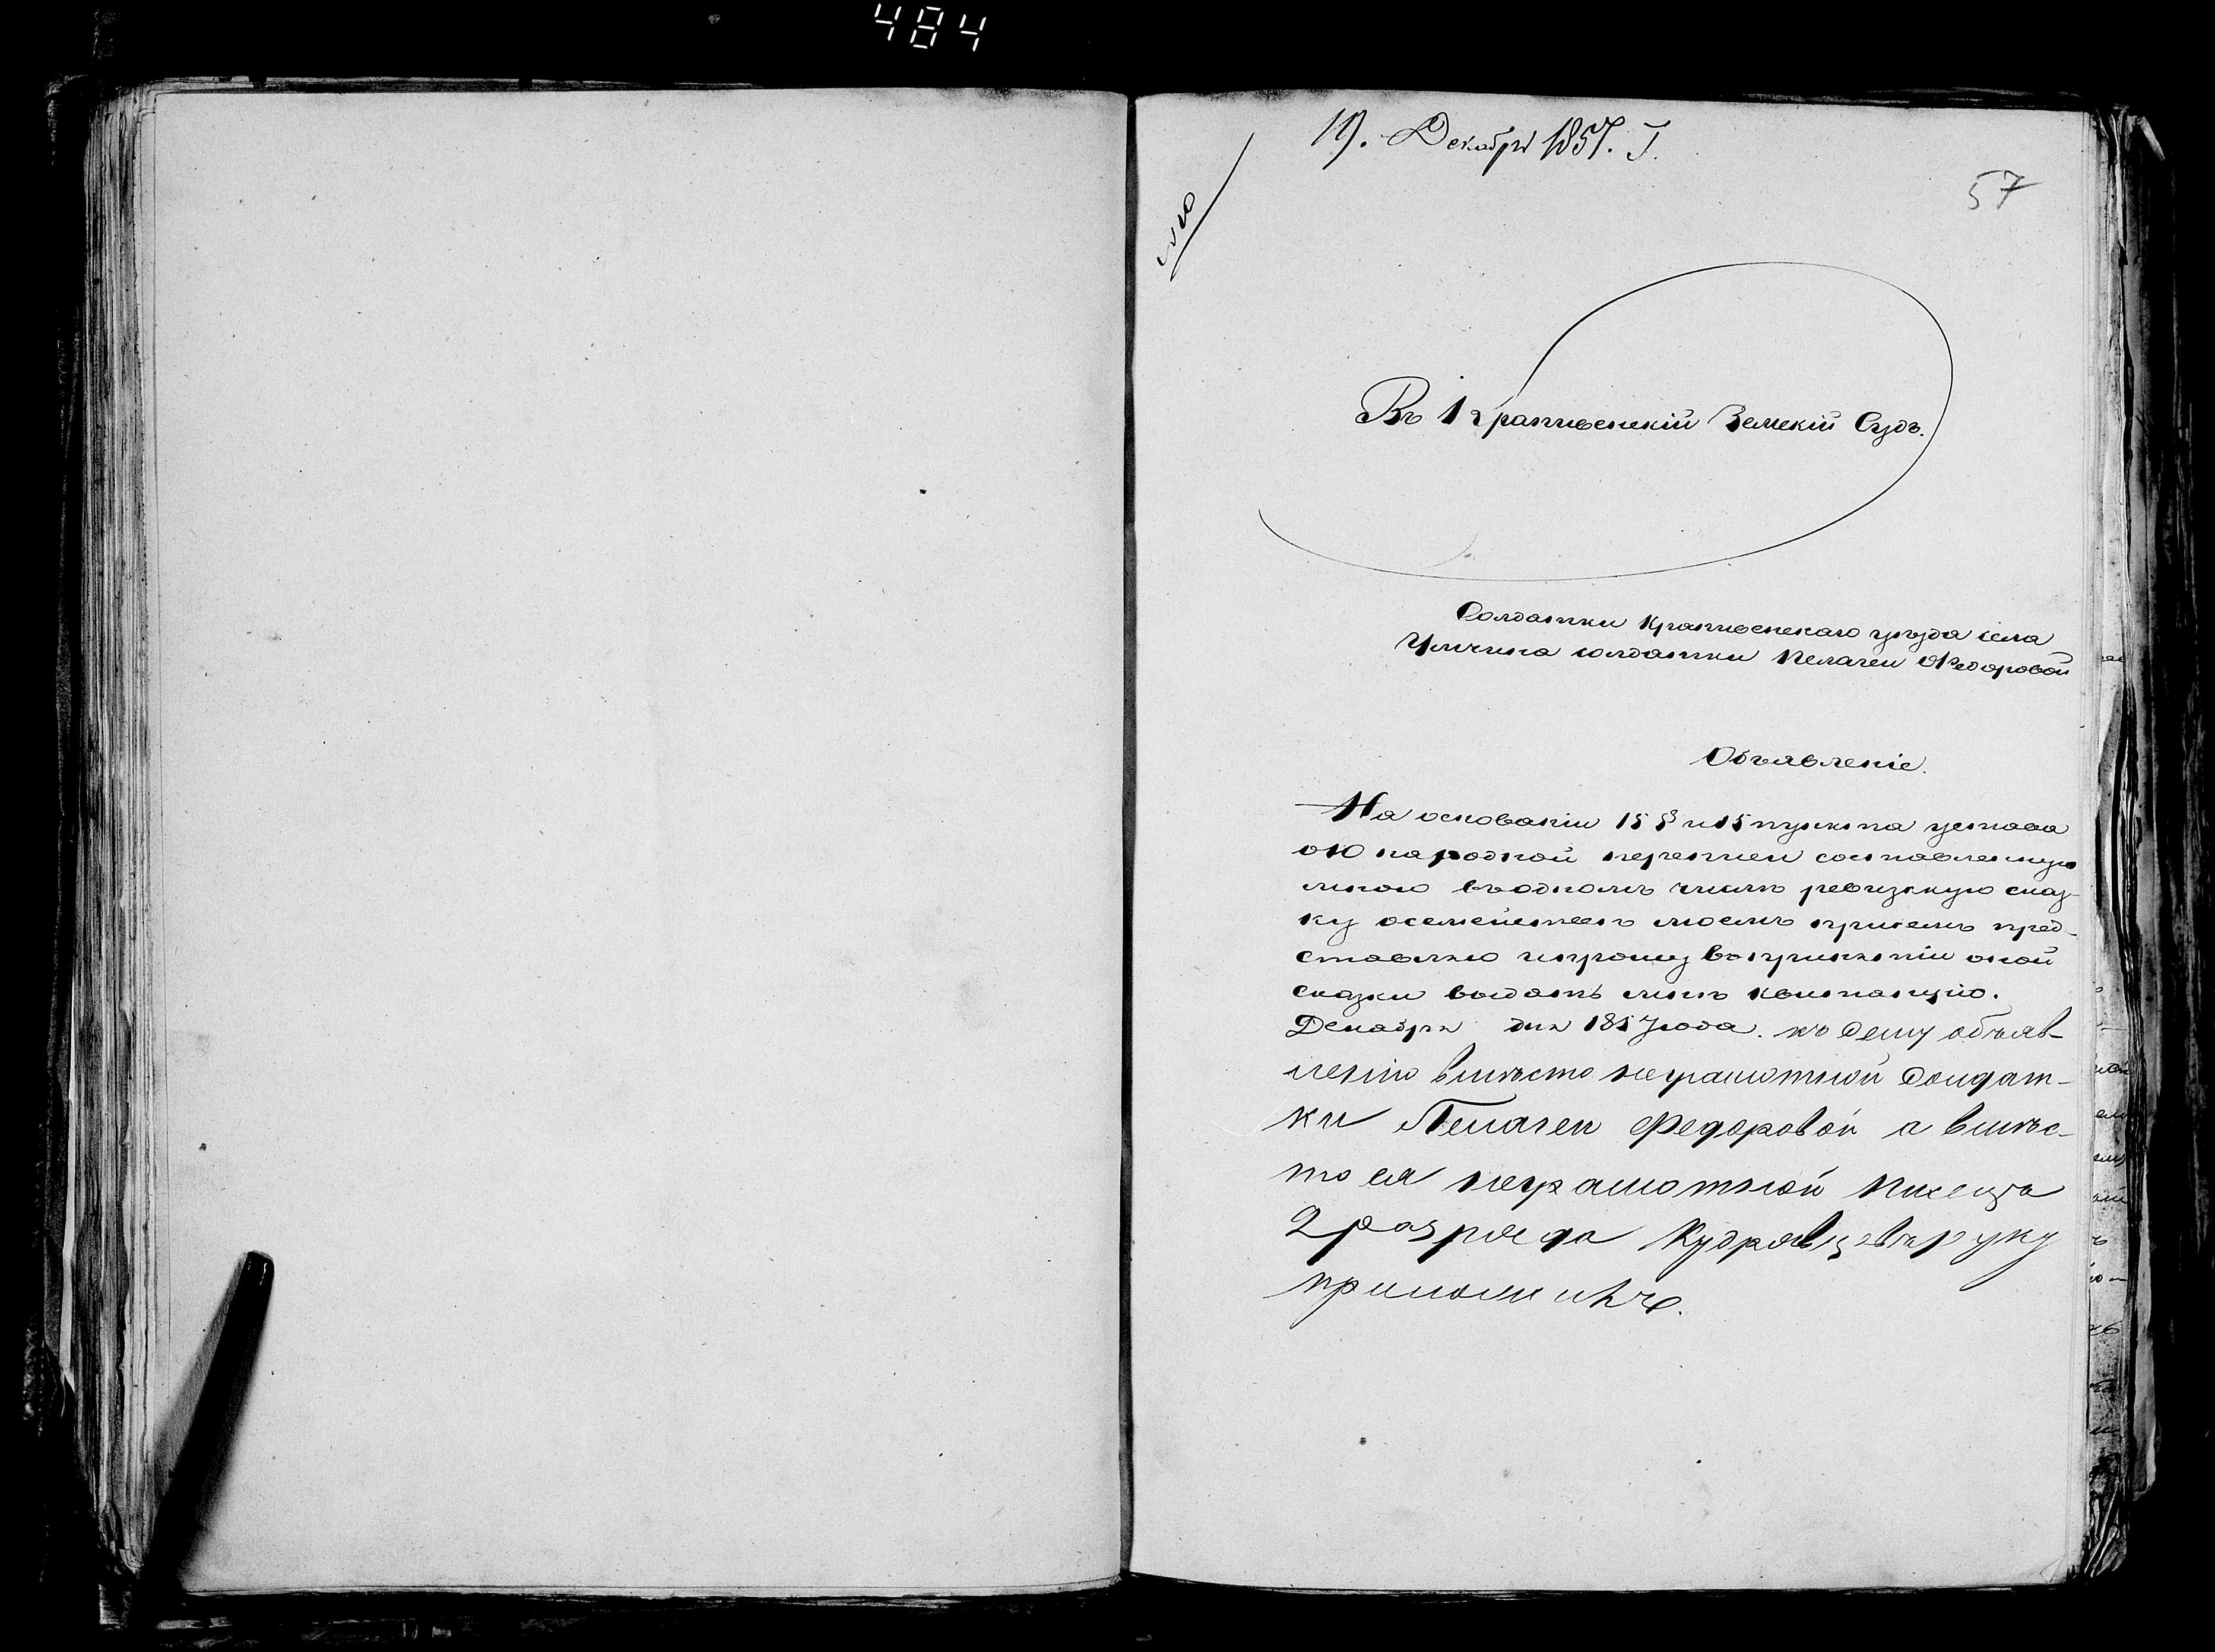 484
19. Декабря 1857. Г.
57
Въ Крапивенскій Земскій Судъ.
Солдатки Крапивенскаго уѣзда села
солдатки Пелагеи Федоровой
Объявленіе.
На основаніи 15 § и 15 пункта устава
о 10 народной переписи составленную
мною въ одномъ числѣ ревизскую сказ-
ку о семействѣ моемъ при семъ пред-
ставляю и прошу въ принятіи оной
сказки выдать мнѣ квитанцію.
Декабря дня 1857 года. къ сему объяв-
ленію вмѣсто неграмотной солдат-
ки Пелагеи Федоровой а вмѣс-
то ея неграмотной писецъ
2 разряда Кудрявцевъ руку
приложилъ.